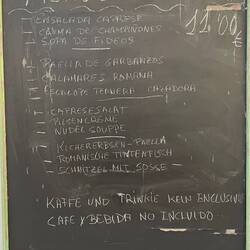 11'00 €
ENSALADA CAPRESE
CREMA DE CHAMPIÑONES
SOPA DE FIDEOS
PAELLA DE GARBANZOS
CALAMARES ROMANA
ESCALOPE TERNERA CAZADORA
CAPRESESALAT
PILZENCREME
NUDEL SOUPPE
KICHERERBSEN-PAELLA
ROMANISCHE TINTENFISCH
SCHNITZEL MIT SOSSE
KAFFE UND TRINKE KEIN INCLUSIV
CAFE Y BEBIDA NO INCLUIDO